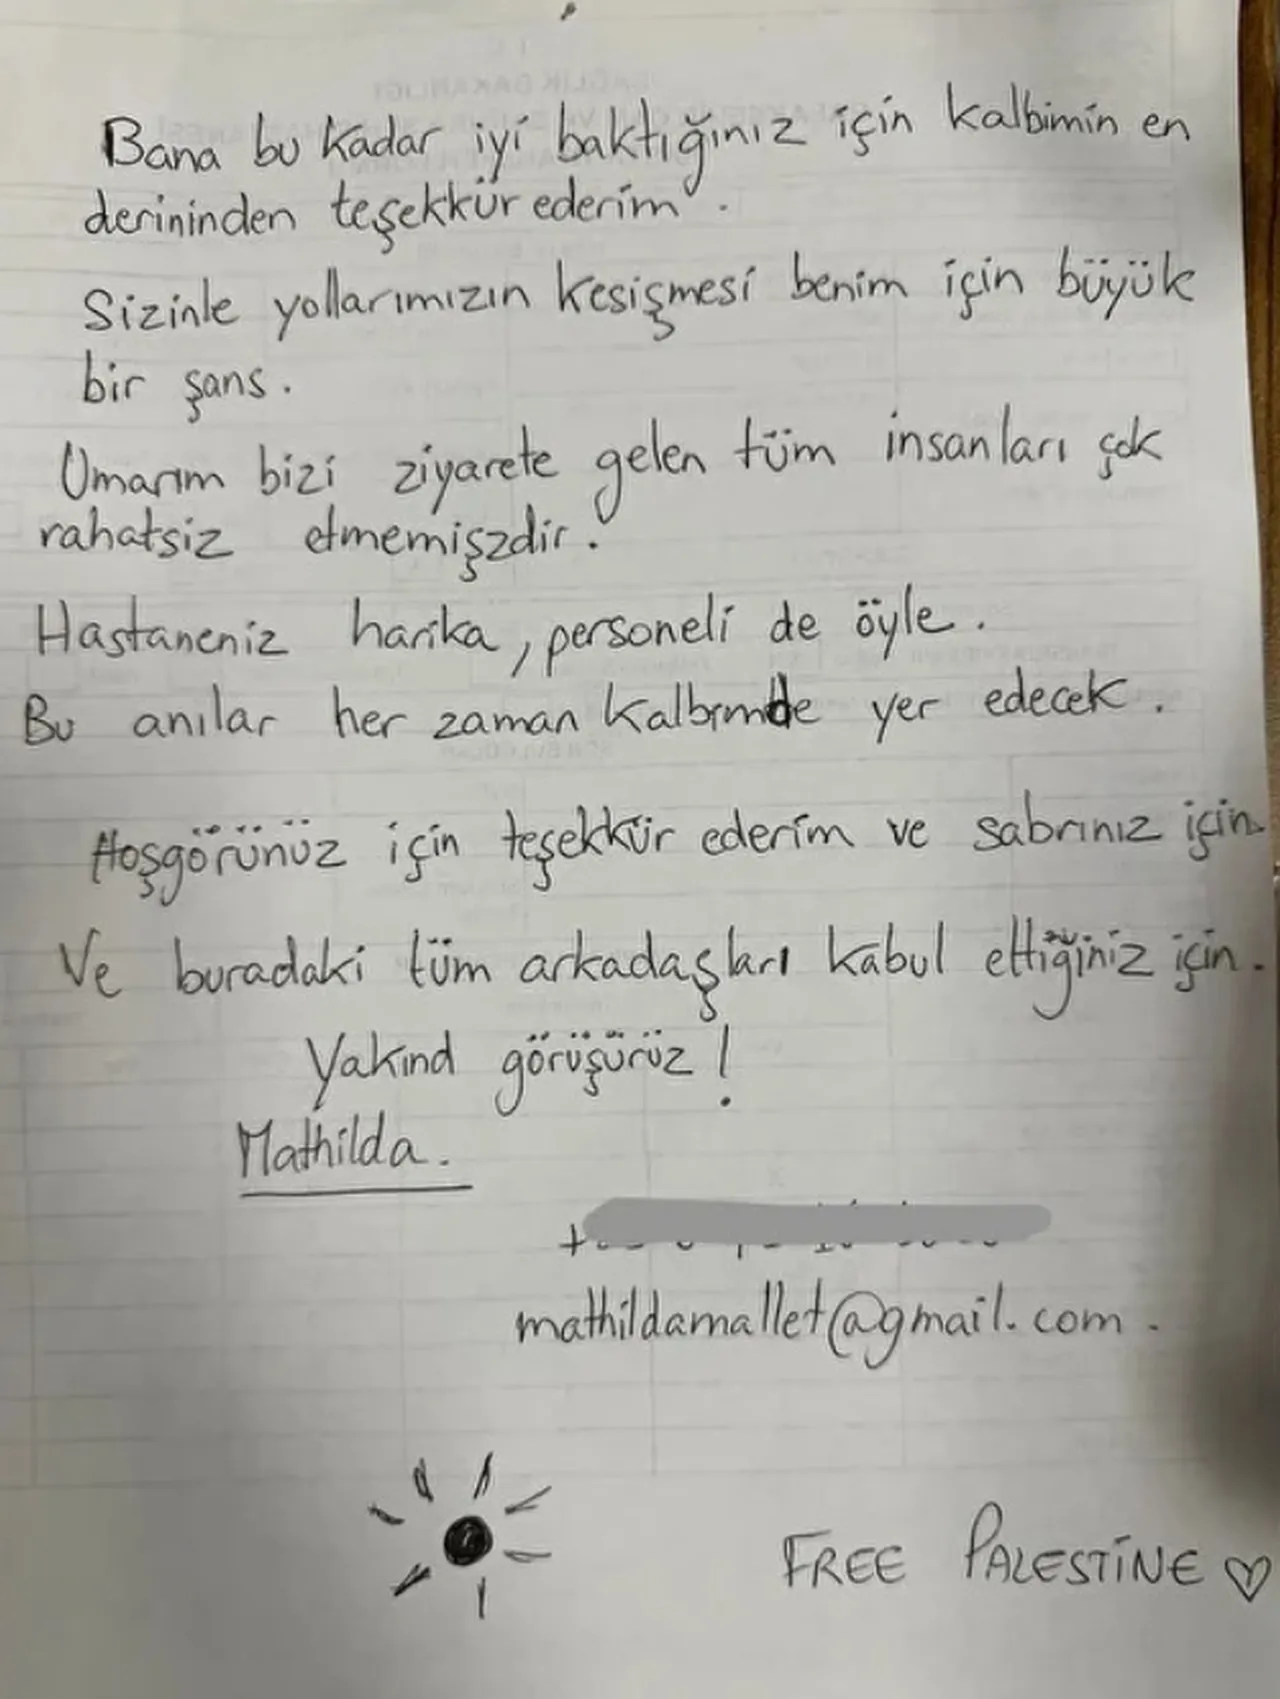 Bana bu kadar iyi baktığınız için kalbimin en
derininden teşekkür ederim.
Sizinle yollarımızın kesişmesi benim için büyük
bir şans.
Umarım bizi ziyarete gelen tüm insanları çok
rahatsiz etmemişzdir.
Hastaneniz harika, personeli de öyle.
Bu anılar her zaman kalbımde yer edecek.
Hoşgörünüz için teşekkür ederim ve sabrınız için.
Ve buradaki tüm arkadaşları kabul ettiğiniz için.
Yakınd görüşürüz!
Mathilda.
mathildamallet@gmail.com.
FREE PALESTİNE ♡